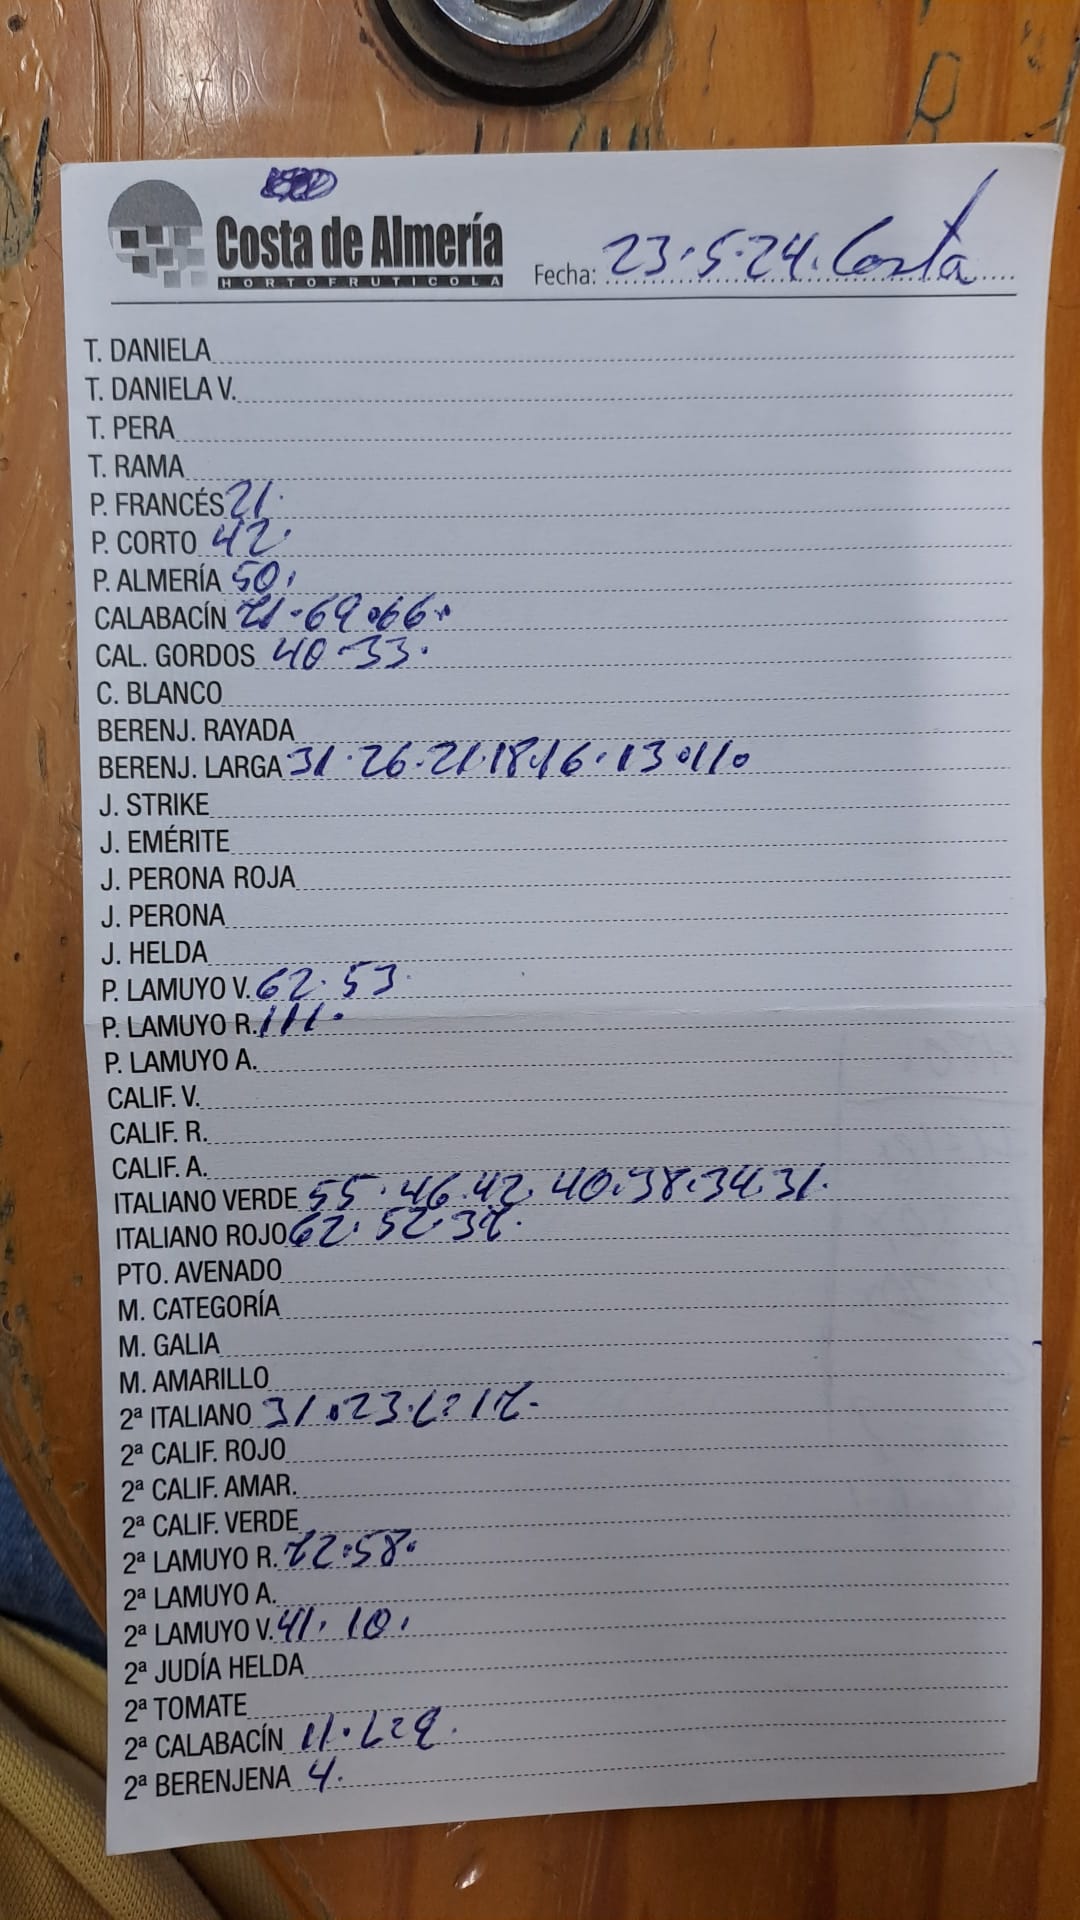 Costa de Almería
HORTOFRUTICOLA
Fecha: 23.5.24. Costa
T. DANIELA
T. DANIELA V.
T. PERA
T. RAMA
P. FRANCÉS 21.
P. CORTO 42.
P. ALMERÍA 50.
CALABACÍN 71.69.66.
CAL. GORDOS 40.33.
C. BLANCO
BERENJ. RAYADA
BERENJ. LARGA 31.26.21.18.16.13.11.
J. STRIKE
J. EMÉRITE
J. PERONA ROJA
J. PERONA
J. HELDA
P. LAMUYO V. 62.53.
P. LAMUYO R. 111.
P. LAMUYO A.
CALIF. V.
CALIF. R.
CALIF. A.
ITALIANO VERDE 55.46.42.40.38.34.31.
ITALIANO ROJO 62.52.37.
PTO. AVENADO
M. CATEGORÍA
M. GALIA
M. AMARILLO
2ª ITALIANO 31.23. 17.
2ª CALIF. ROJO
2ª CALIF. AMAR.
2ª CALIF. VERDE
2ª LAMUYO R. 72.58.
2ª LAMUYO A.
2ª LAMUYO V. 41.10.
2ª JUDÍA HELDA
2ª TOMATE
2ª CALABACÍN 11.
2ª BERENJENA 4.